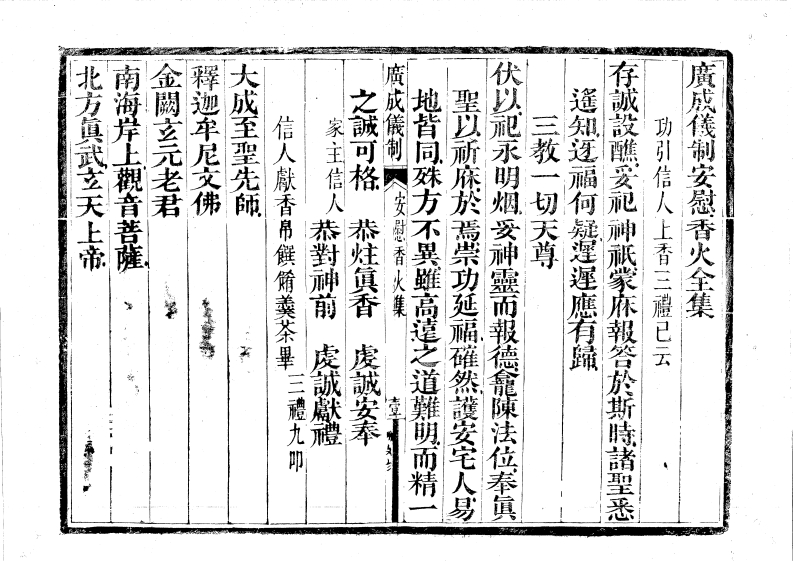 廣成儀制安慰香火全集
功引信人上香三禮已云
存誠設醮妥祀神祇蒙庥報答於斯時諸聖悉
遙知迓福何疑遲遲應有歸
三教一切天尊
伏以祀永明烟妥神靈而報德龕陳法位奉眞
聖以祈庥於焉崇功延福確然護安宅人易
地皆同殊方不異雖高遠之道難明而精一
廣成儀制 安慰香火集 壹
之誠可格 恭炷眞香 虔誠安奉
家主信人 恭對神前 虔誠獻禮
信人獻香帛饌餚羹茶畢 三禮九叩
大成至聖先師
釋迦牟尼文佛
金闕玄元老君
南海岸上觀音菩薩
北方眞武玄天上帝